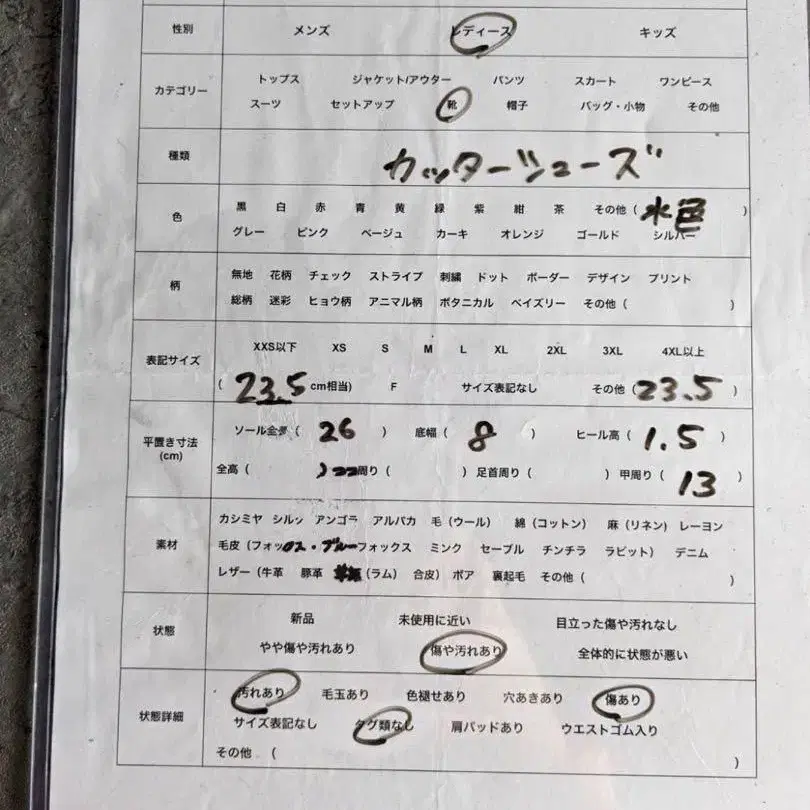 性別 メンズ レディース キッズ
カテゴリー
トップス ジャケット/アウター パンツ スカート ワンピース
スーツ セットアップ 靴 帽子 バッグ・小物 その他
種類 カッターシューズ
色
黒 白 赤 青 黄 緑 紫 紺 茶 その他 ( 水色 )
グレー ピンク ベージュ カーキ オレンジ ゴールド シルバー
柄
無地 花柄 チェック ストライプ 刺繍 ドット ボーダー デザイン プリント
総柄 迷彩 ヒョウ柄 アニマル柄 ボタニカル ペイズリー その他 ( )
表記サイズ
XXS以下 XS S M L XL 2XL 3XL 4XL以上
( 23.5 cm相当) F サイズ表記なし その他 ( 23.5 )
平置き寸法
(cm)
ソール全長 ( 26 ) 底幅 ( 8 ) ヒール高 ( 1.5 )
全高 ( ) 周り ( ) 足首周り ( ) 甲周り ( 13 )
素材
カシミヤ シルク アンゴラ アルパカ 毛 (ウール) 綿 (コットン) 麻 (リネン) レーヨン
毛皮 (フォックス・ブルーフォックス ミンク セーブル チンチラ ラビット) デニム
レザー (牛革 豚革 (ラム) 合皮) ボア 裏起毛 その他 ( )
状態
新品 未使用に近い 目立った傷や汚れなし
やや傷や汚れあり 傷や汚れあり 全体的に状態が悪い
状態詳細
汚れあり 毛玉あり 色褪せあり 穴あきあり 傷あり
サイズ表記なし タグ類なし 肩パッドあり ウエストゴム入り
その他 ( )